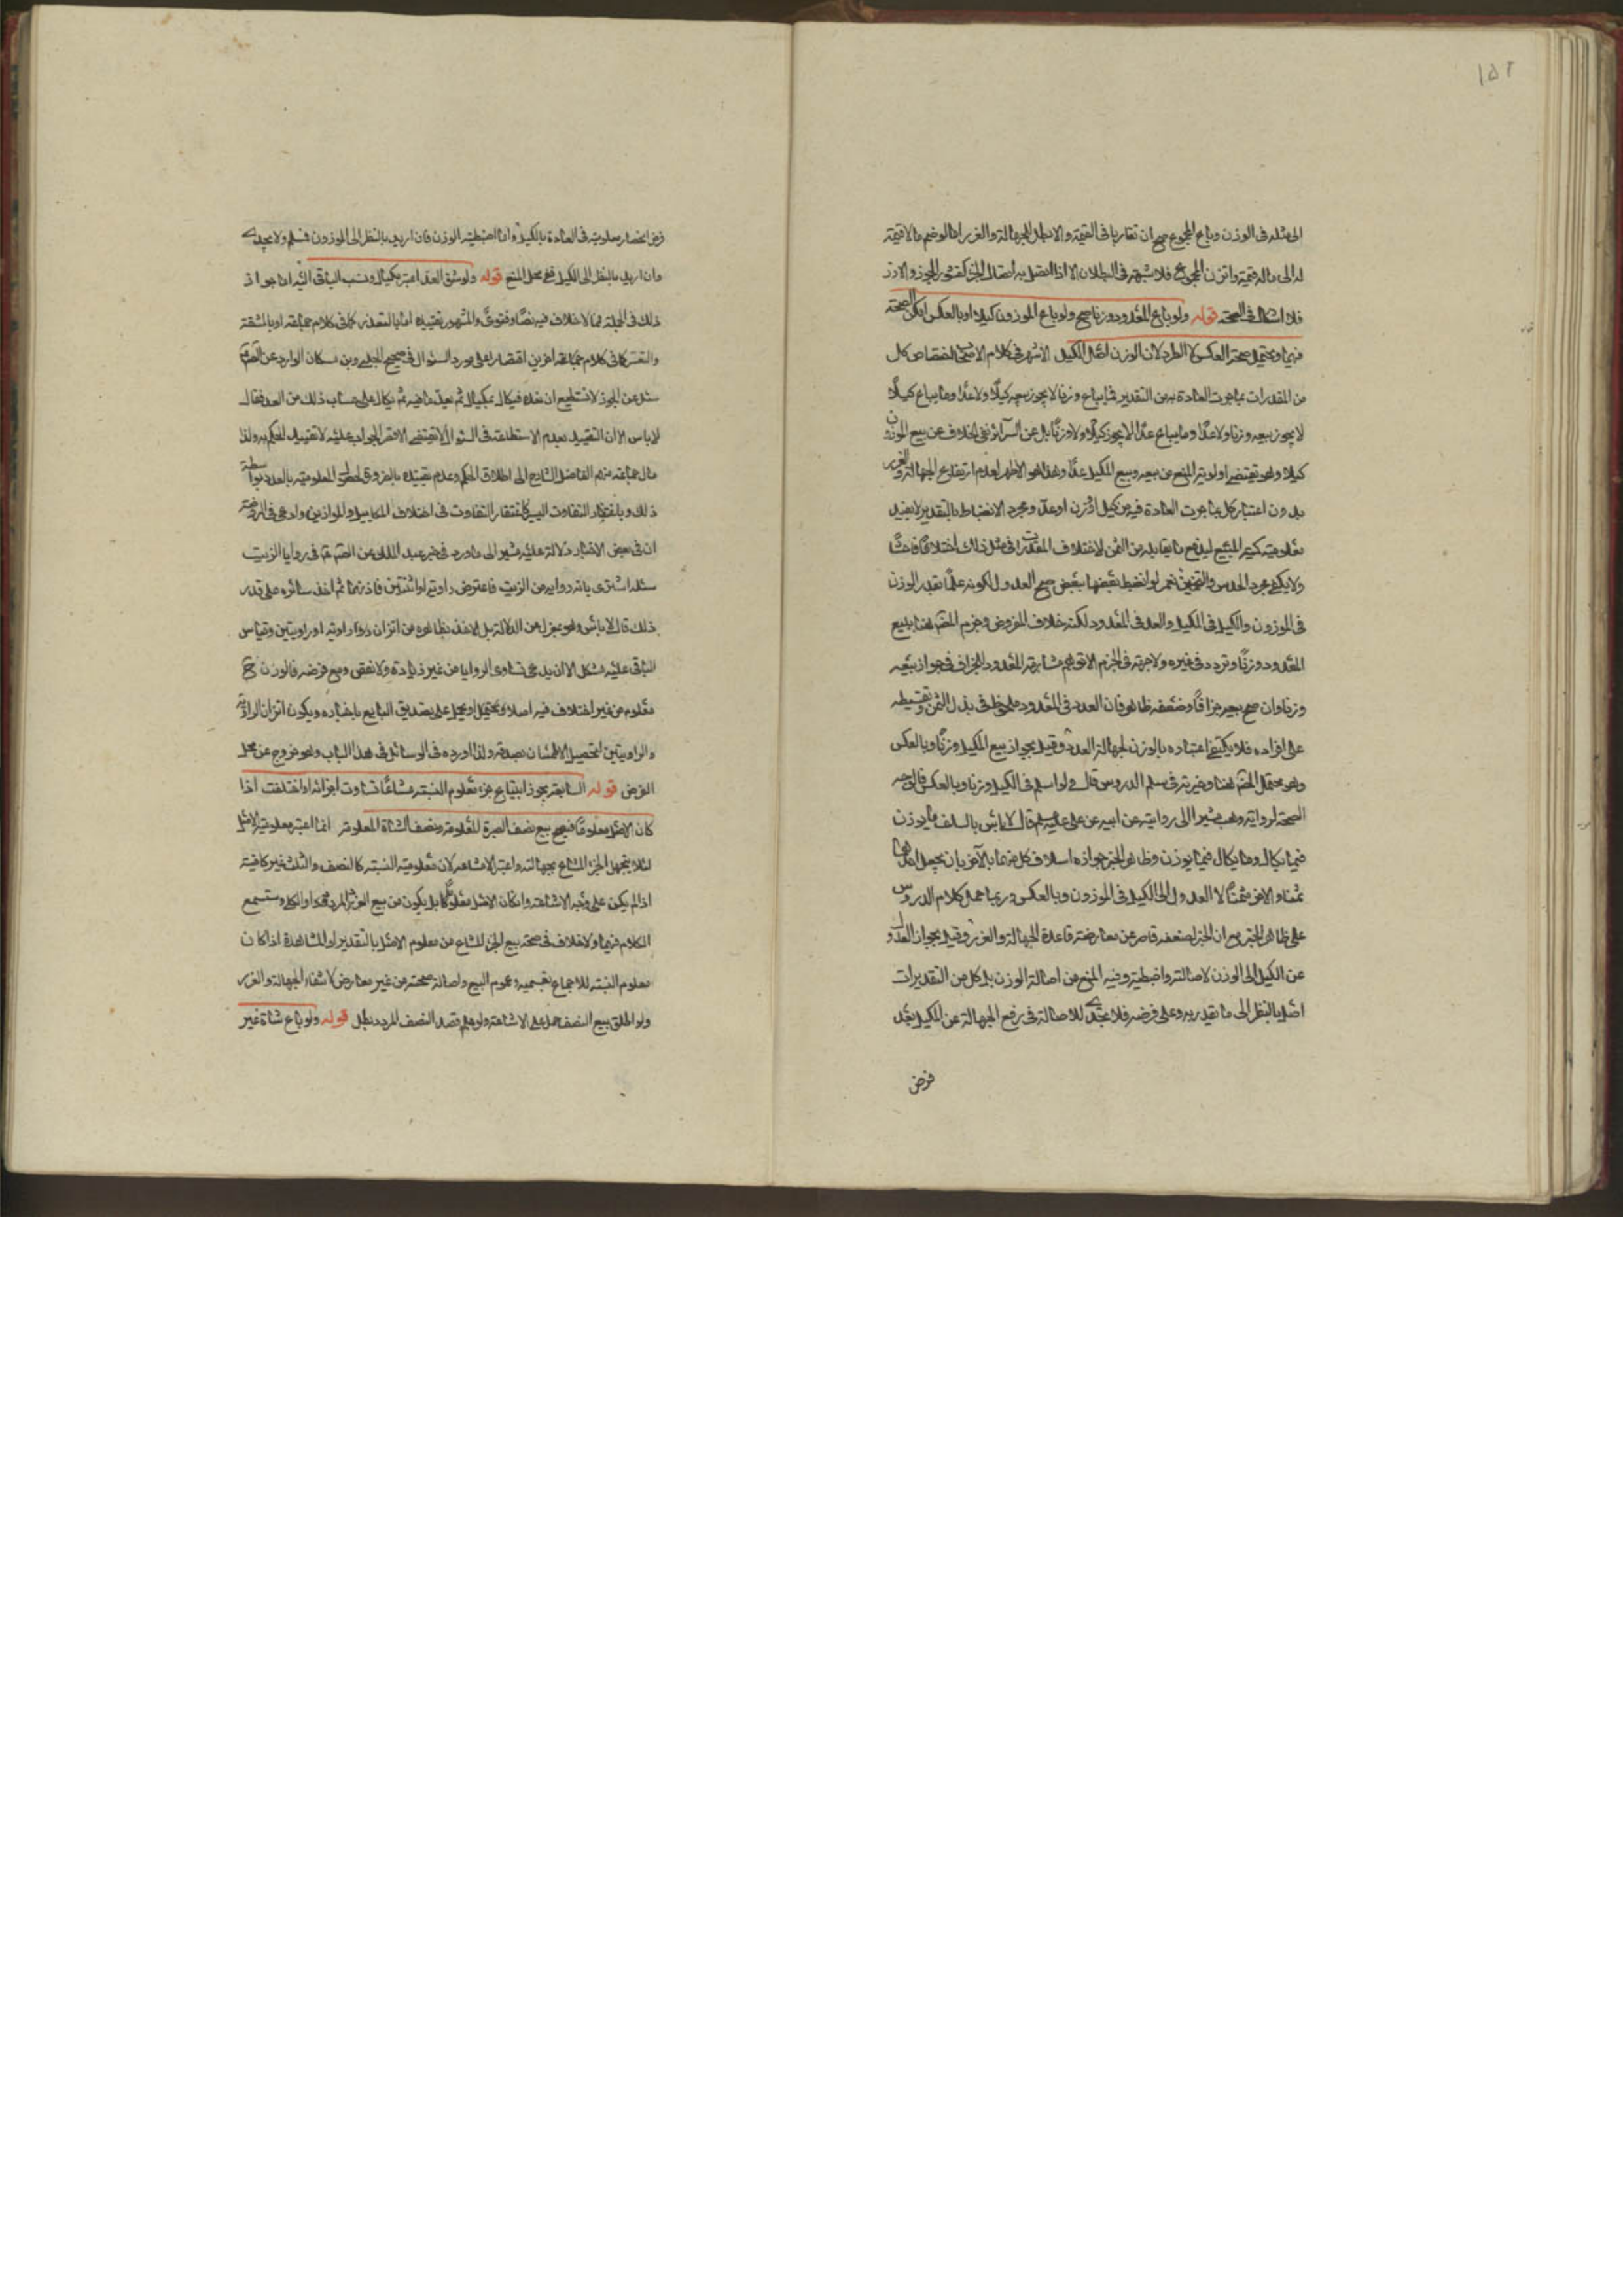 ١٥٢
الى مثله فى الوزن وباع المجموع صح ان تقاربا فى القيمة والا بطل للجهالة والغرر اما لو ضم ما لا قيمة
له الى ماله قيمة واتزن المجموع فلا شبهة فى البطلان الا اذا اتصل به اتصال الجزء كقشور الجوز والارز
فلا اشكال فى الصحة قوله ولو باع المعدود وزنا صح ولو باع الموزون كيلا او بالعكس امكن الصحة
فيهما ويحتمل صحة العكس لا الطرد لان الوزن اصل الكيل الاشهر فى كلام الاصحاب اختصاص كل
من المقدرات بما جرت العادة به من التقدير فما يباع وزنا لا يجوز بيعه كيلًا ولا عدًا وما يباع كيلًا
لا يجوز بيعه وزنا ولا عدًا وما يباع عدًا لا يجوز كيلًا ولا وزنًا بل عن السرائر نفى الخلاف عن بيع الموزون
كيلا وهو يقتضى اولوية المنع من بيعه وبيع المكيل عدًا وهذا هو الاظهر لعدم ارتفاع الجهالة والغرر
بدون اعتبار كل بما جرت العادة فيه من كيل او وزن او عد ومجرد الانضباط بالتقدير لا يفيد
معلومية كمية المبيع ليصح ما يقابله من الثمن لاختلاف المقدرات فى مثل ذلك اختلافًا فاحشًا
ولا يكفى مجرد الحدس والتخمين نعم لو انضبط بعضها ببعض صح العدول لكونه علمًا بقدر الوزن
فى الموزون والكيل فى المكيل والعد فى المعدود لكنه خلاف المفروض وجزم المصنف هنا ببيع
المعدود وزنًا وتردد فى غيره ولا جهة فى الجزم الا توهم مشابهة المعدود للجزاف فى جواز بيعه
وزنا وان صح بيعه جزافًا وضعفه ظاهر فان العدد فى المعدود ملحوظ فى بذل الثمن وتقسيطه
على افراده فلا يكتفى اعتباره بالوزن لجهالة العدد وقيل بجواز بيع المكيل وزنًا وبالعكس
وهو محتمل المصنف هنا وخيرته فى سلم الدروس قال ولو اسلم فى الكيل وزنا وبالعكس فالوجه
الصحة لرواية وهب مشيرا الى روايته عن ابيه عن على عليه السلام قال لا باس بالسلف ما يوزن
فيما يكال وما يكال فيما يوزن وظاهر الخبر جوازه اسلاف كل منهما بالآخر بان يجعل احدهما
ثمنا والاخر مثمنًا لا العدول الى الكيل فى الموزون وبالعكس وربما حمل كلام الدروس
على ظاهر الخبر مع ان الخبر لضعفه قاصر عن معارضة قاعدة الجهالة والغرر وقيل بجواز العدول
عن الكيل الى الوزن لاصالته واضبطيته وفيه المنع من اصالة الوزن بل كل من التقديرات
اصل بالنظر الى ما يقدر به وعلى فرضه فلا يجدى للاصالة فى رفع الجهالة عن المكيل بعد
فرض
فرض انحصار معلوميته فى العادة بالكيل واما اضبطية الوزن فان اريد بالنظر الى الموزون فمسلم ولا يجدى
وان اريد بالنظر الى الكيل ففى محل المنع قوله ولو شق العد اعتبر مكيال ونسب الباقى اليه اما جواز
ذلك فى الجملة فمما لا خلاف فيه نصًا وفتوىً والمشهور تقييده اما بالتعذر كما فى كلام جماعة او بالمشقة
والتعسر كما فى كلام جماعة اخرين اقتصارا على مورد السؤال فى صحيح الحلبى وبن مسكان الوارد عن الصادق
سئل عن الجوز لا نستطيع ان نعده فيكال بمكيال ثم يعد ما فيه ثم يكال على حساب ذلك من العدد فقال
لا باس الا ان التقييد بعدم الاستطاعة فى السؤال لا يقتضى الا قصر الجواب عليه لا تقييد الحكم به ولذا
مال جماعة منهم الفاضل الشارح الى اطلاق الحكم وعدم تقييده بالفروق لحصول المعلومية بالعدد بواسطة
ذلك وباغتفار التفاوت اليسير كاغتفار التفاوت فى اختلاف المكاييل والموازين وادعى فى الروضة
ان فى بعض الاخبار دلالة عليه مشيرا الى ما ورد فى خبر عبد الملك عن الصادق ع فى روايا الزيت
سئله اشترى ماية راوية من الزيت فاعترض راوية او اثنتين فاتزنهما ثم اخذ سائره على قدر
ذلك قال لا باس وهو بمعزل عن الدلالة بل الاخذ بظاهره من اتزان راوية او راويتين وقياس
الباقى عليه مشكل الا ان يدعى تساوى الروايا من غير زيادة ولا نقص ومع فرضه فالوزن ح
معلوم من غير اختلاف فيه اصلا ويحتمل او يحمل على تصديق البايع باخباره ويكون اتزان الراوية
والراويتين لتحصيل الاطمينان بصدقه ولذا اورده فى الوسائل فى هذا الباب وهو خروج عن محل
الفرض قوله السابعة يجوز ابتياع جزء معلوم النسبة مشاعًا تساوت اجزائه او اختلفت اذا
كان الاصل معلومًا فيصح بيع نصف الصبرة المعلومة ونصف الشاة المعلومة انما اعتبر معلومية الاصل
لئلا يجهل الجزء المشاع بجهالته واعتبر الاشاعة لان معلومية النسبة كالنصف والثلث غير كافية
اذا لم يكن على وجه الاشاعة وان كان الاصل معلومًا بل يكون من بيع الجزء المردد قدرا والكلى وستسمع
الكلام فيهما ولا خلاف فى صحة بيع الجزء المشاع من معلوم الاصل بالتقدير او المشاهدة اذا كان
معلوم النسبة للاجماع بقسميه وعموم البيع واصالة صحته من غير معارض لانتفاء الجهالة والغرر
ولو اطلق بيع النصف حمل على الاشاعة ولو علم قصد النصف المردد بطل قوله ولو باع شاة غير